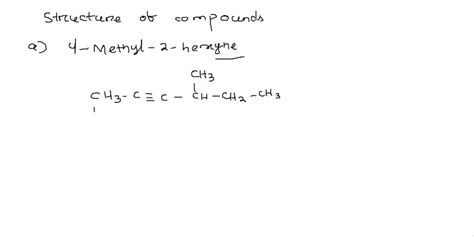 Structure of compounds
a) 4-Methyl-2-hexyne
CH3
CH3-C≡C-CH-CH2-CH3